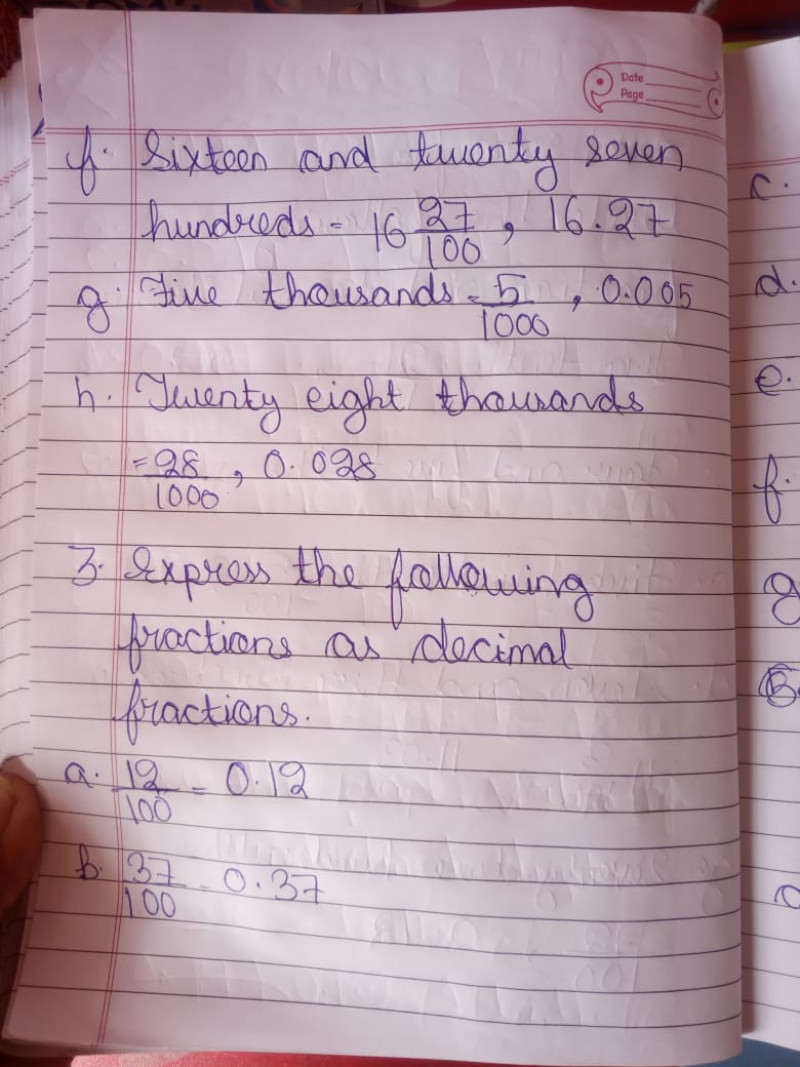 Date
Page
f. Sixteen and twenty seven
hundreds = 16 27/100, 16.27
g. Five thousands = 5/1000, 0.005
h. Twenty eight thousands
= 28/1000, 0.028
3. Express the following
fractions as decimal
fractions.
a. 12/100 = 0.12
b. 37/100 = 0.37
c.
d.
e.
f.
g
B.